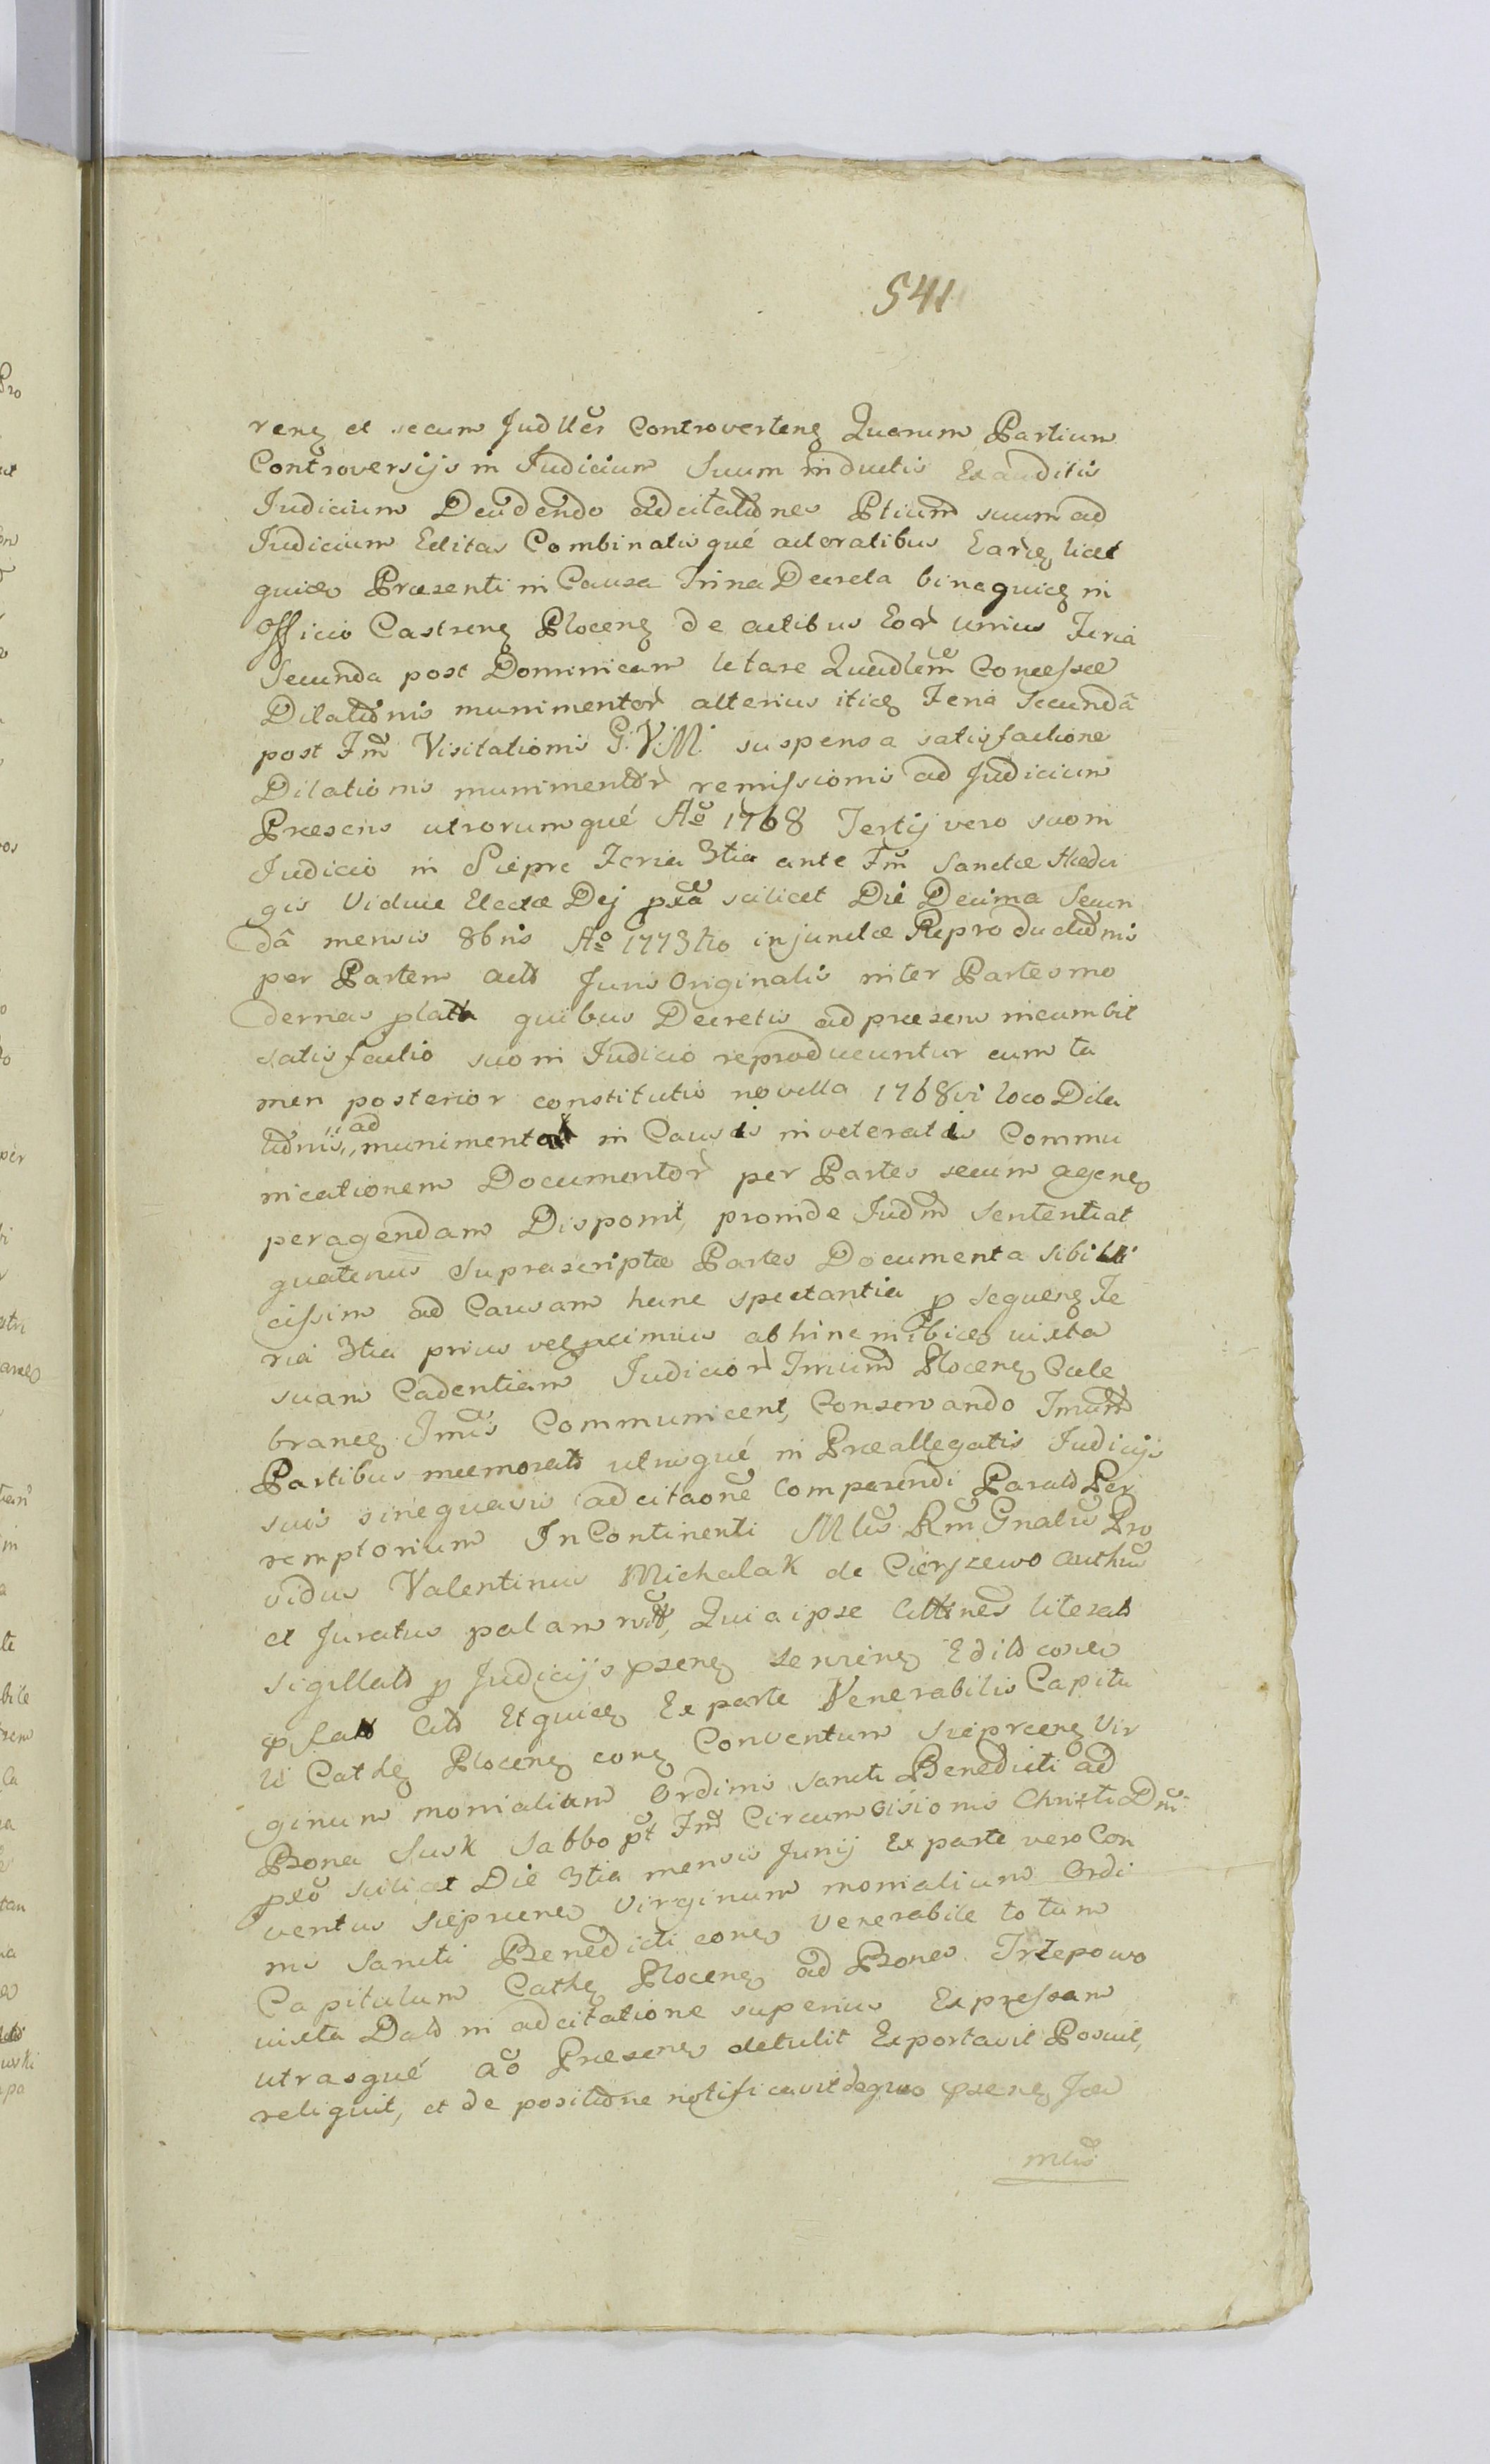 541
renꝫ et secum Judllr̃ Controvertenꝫ Quarum Partium
Controversijs in Judicium Suum inductis Exauditis
Judicium Decidendo adcitatõnes Ptium suum ad
Judicium Editas Combinatis qué actoratibus Earꝫ licet
quidꝫ Præsenti in Causa Trina Decreta bina quidꝫ in
Officio Castrenꝫ Plocenꝫ de actibus Eor̃ unius Feria
Secunda post Dominicam letare Quadlem Concessæ
Dilatõnis munimentor̃ alterius itidꝫ Feria Secundâ
post Fm̃ Visitationis G. V. M. suspensa satisfactione
Dilationis munimentor̃ remissionis ad Judicium
Præsens utrorumqué Aõ 1768 Tertij vero suo in
Judicio in Sieprc Feria 3tia ante Fm̃ Sanctæ Hedvi
gis Viduæ Electæ Dej pxã scilicet Die Decima Secun
dâ mensis 8bris Aõ 1773tio injunctæ Reproductõnis
per Partem Juris Originalis inter Partes mo
dernas quibus Decretis ad præsens incumbit
satisfactio suo in Judicio reproducuntur cum ta
men posterior constitutio novella 1768vi loco Dila
tõnis ad munimenta in Causis inveteratis Commu
nicationem Documentor̃ per Partes secum agenꝫ
peragendam Disponit, proinde Judm̃ Sententiat
quatenus Suprascriptæ Partes Documenta sibi
cissim ad Causam hanc spectantia p̱ sequenꝫ Fe
ria 3tia prius vel abhinc ibidꝫ iuxta
suam Cadentiam Judicior̃ Plocenꝫ Cele
branꝫ Communicent, Conservando
Partibus utrisqué in Præallegatis Judicijs
suis sine quavis adcitaoñe Comparendi Per
remptorium In Continenti Mlis Rm̃ Gnalis Pro
vidus Valentinus Michalak de Cierszewo Authus
et Juratus palam Quia ipse literas
sigillats p̱ Judicijs
Etquidꝫ Ex parte Venerabilis Capitu
li Cathꝫ Plocenꝫ conꝫ Conventum Sieprcenꝫ Vir
ginum monialium Ordinis Sancti Benedicti ad
Bona Susk Sabbo pt̃ Fm̃ Circumcisionis Christi Dni
pxõ scilicet Die 3tia mensis Junij Ex parte vero Con
ventus Sieprcenꝫ Virginum monialium Ordi
nis Sancti Benedicti conꝫ Venerabile totum
Capitulum Cathꝫ Plocenꝫ ad Bona Trzepowo
iuxta Dats in adcitatione superius Expressam
utrasqué aõ Præsenꝫ detulit Exportavit Posuit,
reliquit, et de positõne notificavit deque
mlis